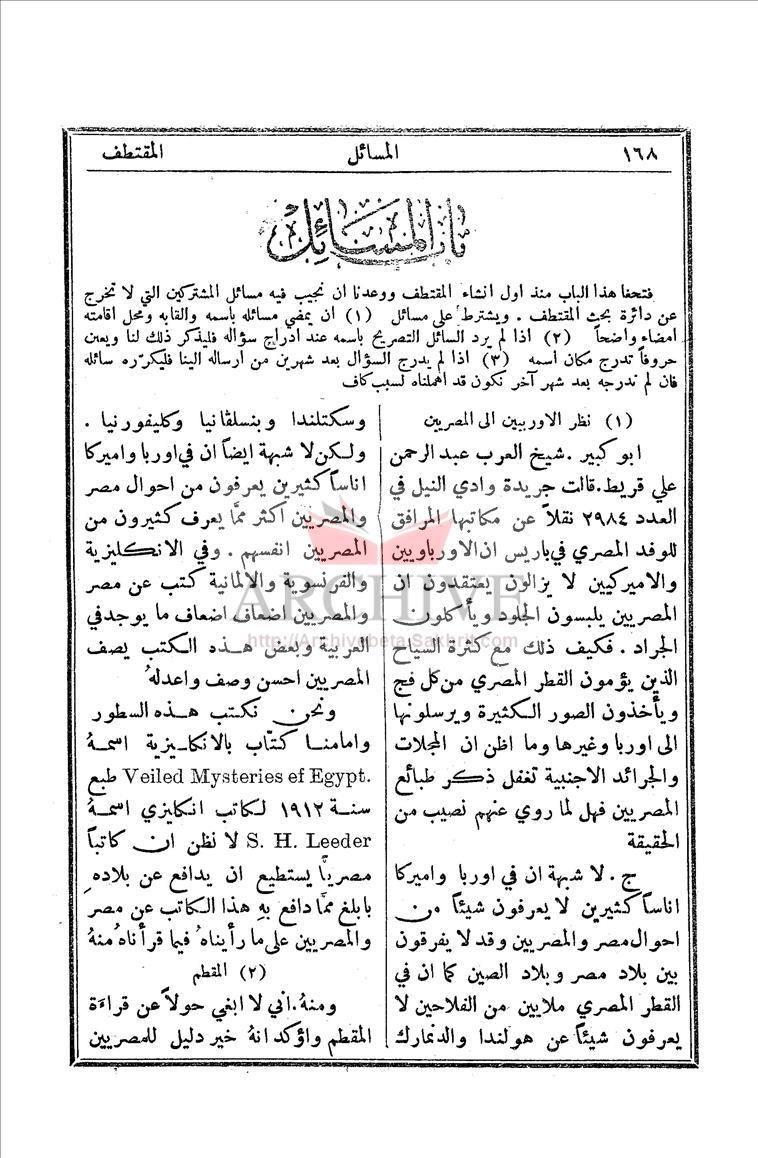 ١٦٨ المسائل المقتطف
باب المسائل
فتحنا هذا الباب منذ اول انشاء المقتطف ووعدنا ان نجيب فيه مسائل المشتركين التي لا تخرج
عن دائرة بحث المقتطف . ويشترط على مسائل (١) ان يمضي مسائله باسمه والقابه ومحل اقامته
امضاء واضحاً (٢) اذا لم يرد السائل التصريح باسمه عند ادراج سؤاله فليذكر ذلك لنا ويعين
حروفاً تدرج مكان اسمه (٣) اذا لم يدرج السؤال بعد شهرين من ارساله الينا فليكرّره سائله
فان لم ندرجه بعد شهر آخر نكون قد اهملناه لسبب كاف
(١) نظر الاوربيين الى المصريين
ابو كبير . شيخ العرب عبد الرحمن
علي قريط . قالت جريدة وادي النيل في
العدد ٢٩٨٤ نقلاً عن مكاتبها المرافق
للوفد المصري في باريس ان الاورباويين
والاميركيين لا يزالون يعتقدون ان
المصريين يلبسون الجلود ويأكلون
الجراد . فكيف ذلك مع كثرة السياح
الذين يؤمون القطر المصري من كل فج
ويأخذون الصور الكثيرة ويرسلونها
الى اوربا وغيرها وما اظن ان المجلات
والجرائد الاجنبية تغفل ذكر طبائع
المصريين فهل لما روي عنهم نصيب من
الحقيقة
ج . لا شبهة ان في اوربا واميركا
اناساً كثيرين لا يعرفون شيئاً من
احوال مصر والمصريين وقد لا يفرقون
بين بلاد مصر وبلاد الصين كما ان في
القطر المصري ملايين من الفلاحين لا
يعرفون شيئاً عن هولندا والدنمارك
وسكتلندا وبنسلڤانيا وكليفورنيا .
ولكن لا شبهة ايضاً ان في اوربا واميركا
اناساً كثيرين يعرفون من احوال مصر
والمصريين اكثر ممّا يعرف كثيرون من
المصريين انفسهم . وفي الانكليزية
والفرنسوية والالمانية كتب عن مصر
والمصريين اضعاف اضعاف ما يوجد في
العربية وبعض هذه الكتب يصف
المصريين احسن وصف واعدلهُ
ونحن نكتب هذه السطور
وامامنا كتاب بالانكليزية اسمهُ
Veiled Mysteries ef Egypt. طبع
سنة ١٩١٢ لكاتب انكليزي اسمهُ
S. H. Leeder لا نظن ان كاتباً
مصريّاً يستطيع ان يدافع عن بلاده
بابلغ ممّا دافع بهِ هذا الكاتب عن مصر
والمصريين على ما رأيناهُ فيما قرأناهُ منهُ
(٢) المقطم
ومنهُ . اني لا ابغي حولاً عن قراءة
المقطم واؤكد انهُ خير دليل للمصريين
ARCHIVE
http://Archivebeta.Sakhrit.com